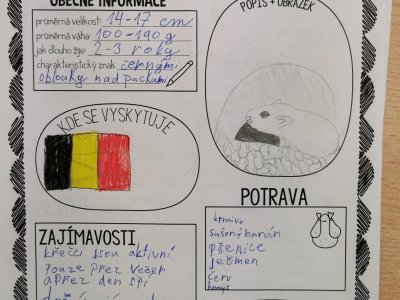 OBECNÉ INFORMACE
průměrná velikost: 14-17 cm
průměrná váha: 100-190g
jak dlouho žije: 2-3 roky
charakteristický znak: černými
oblouky nad packami
POPIS + OBRÁZEK
KDE SE VYSKYTUJE
ZAJÍMAVOSTI
křečci jsou aktivní
pouze přez večer
a přez den spí
POTRAVA
krmivo
sušený banán
pšenice
ječmen
červ
hmyz